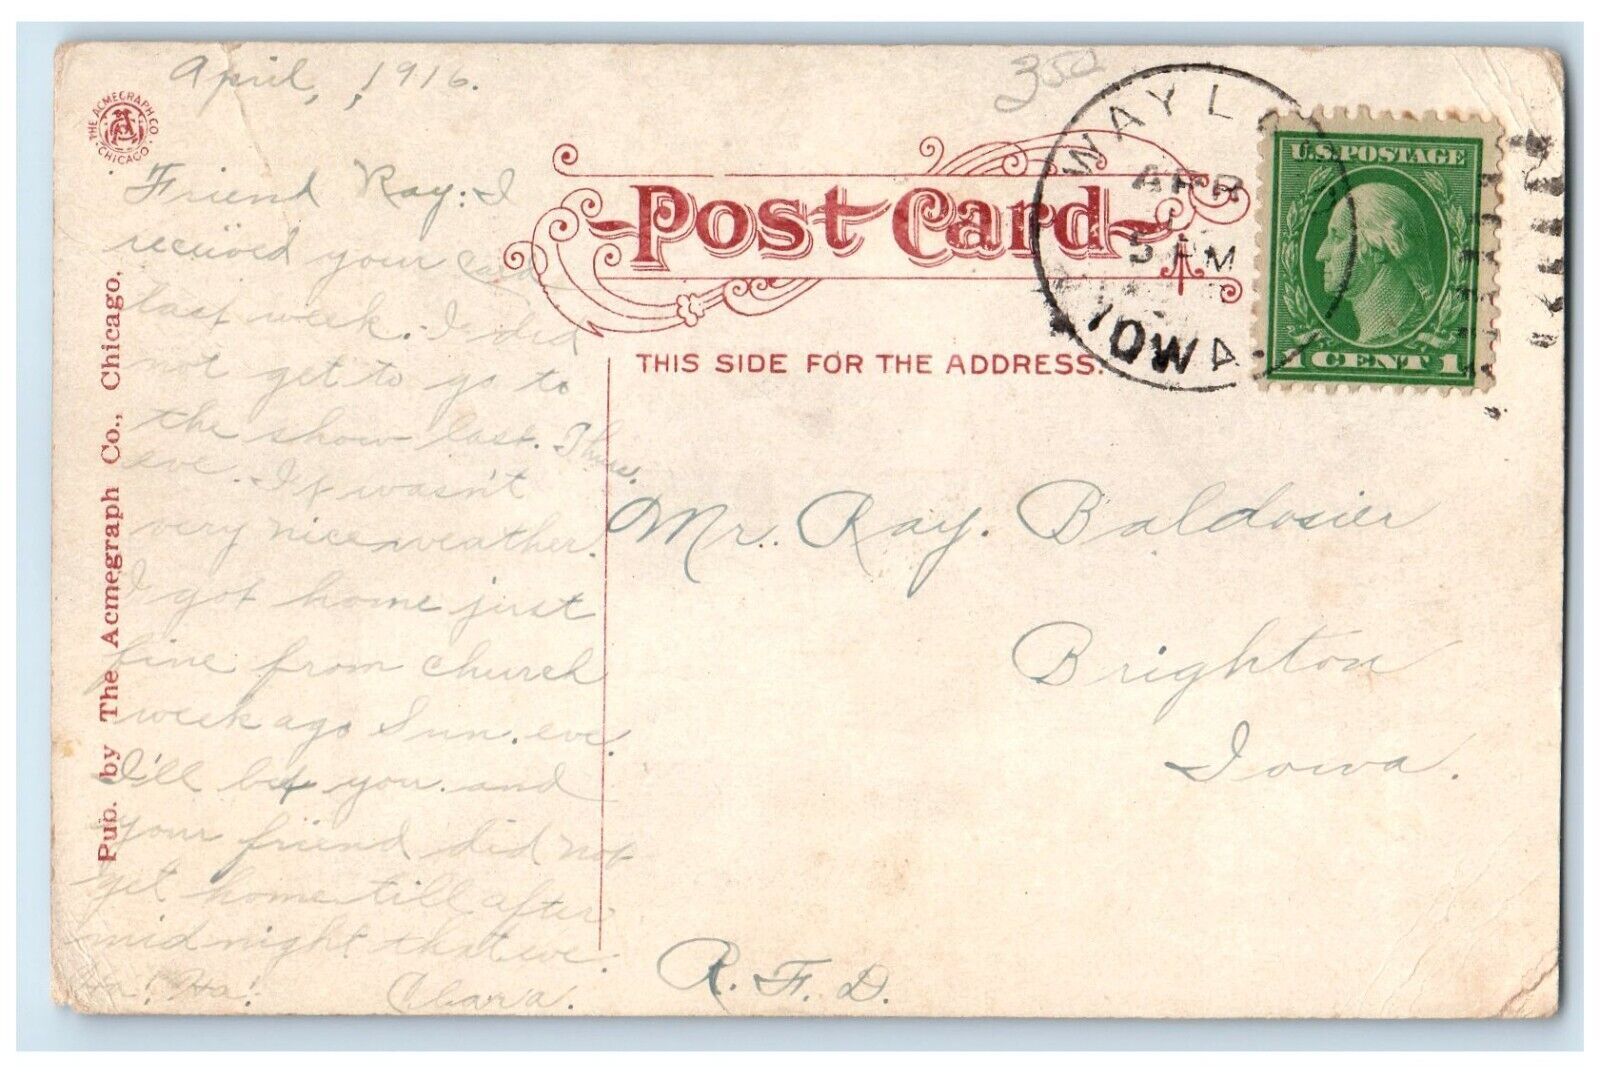 April, , 1916.
350
THE ACMEGRAPH CO.
CHICAGO
Friend Ray: I
received your card
last week. I did
not get to go to
the show last. Thurs.
eve. It wasn't
very nice weather.
I got home just
fine from church
week ago Sun. eve.
I'll bet you and
your friend did not
get home till after
mid night that eve.
Ha! Ha! Clara.
Pub. by The Acmegraph Co., Chicago.
Post Card
THIS SIDE FOR THE ADDRESS.
WAYL
APR
5 PM
IOWA
U.S. POSTAGE
1 CENT 1
Mr. Ray. Baldosier
Brighton
Iowa.
R. F. D.